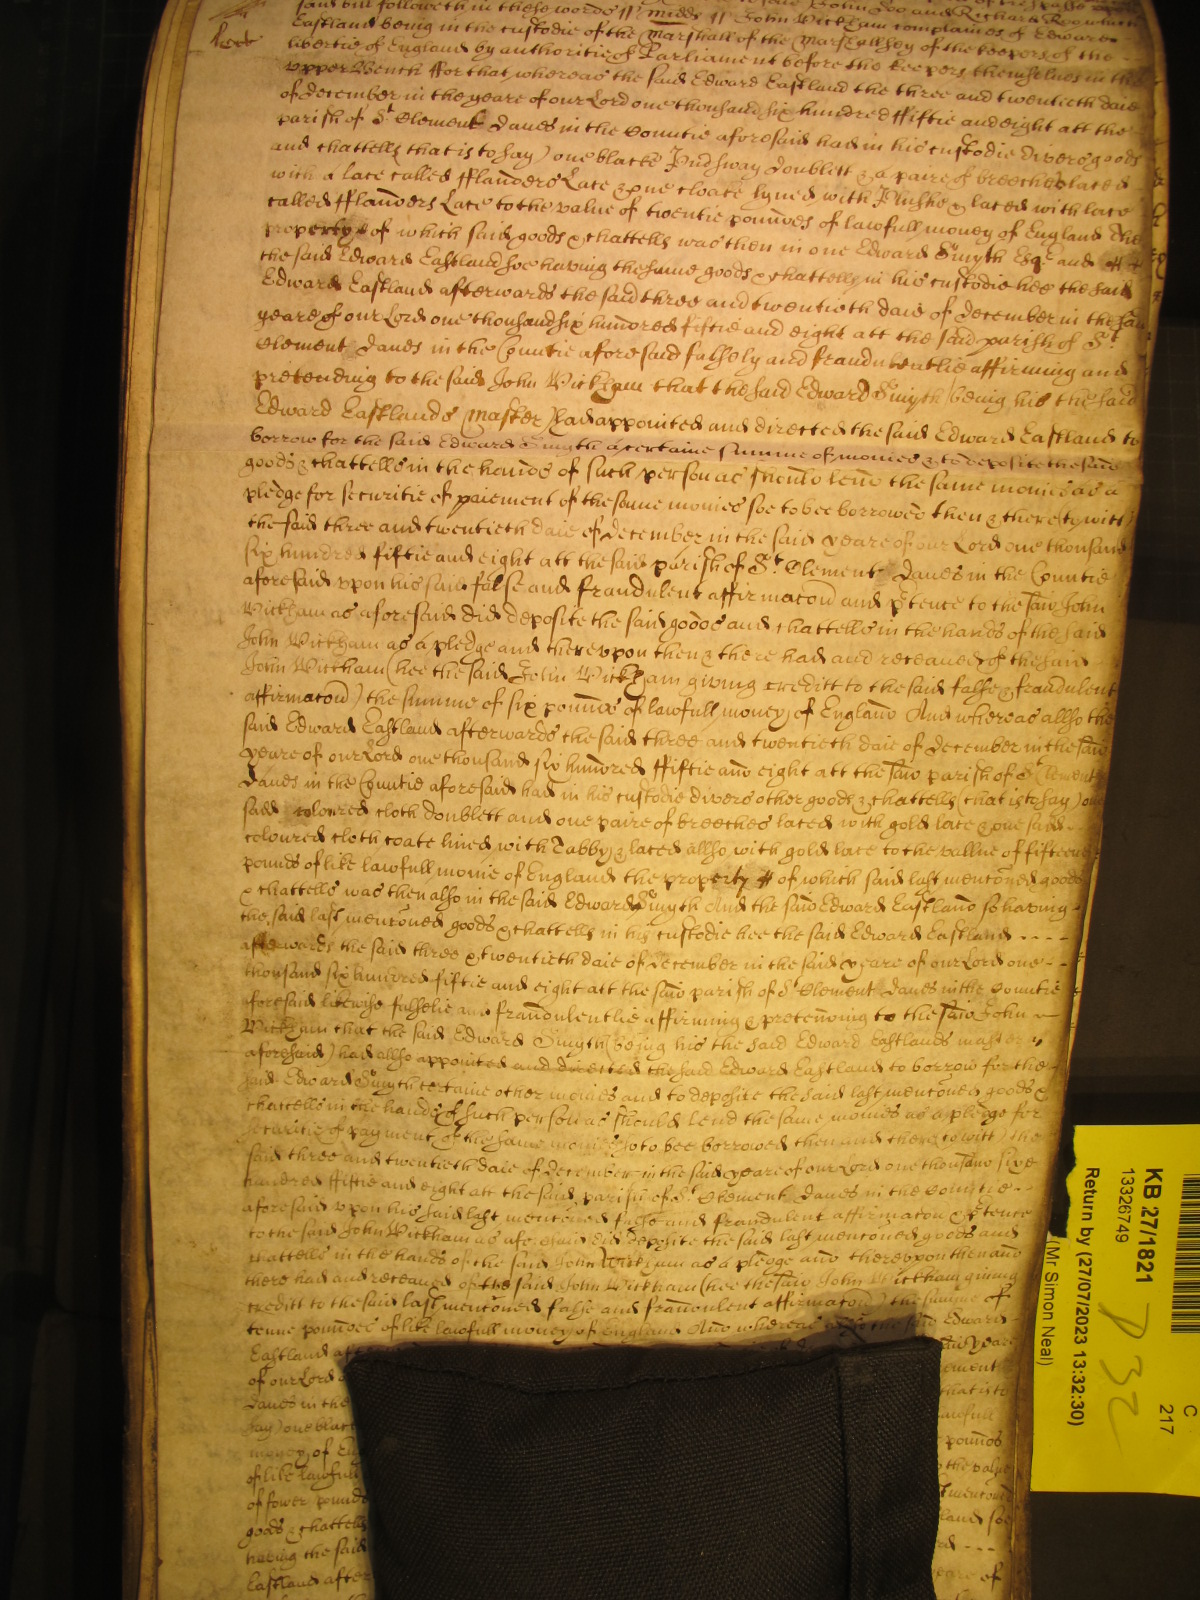 said bill followeth in these words ss midds ss John Wickham complaines of Edward
Eastland being in the custodie of the Marshall of the Marshallsey of the keepers of the
libertie of England by authoritie of Parliament before the keepers themselves in the
upper Bench ffor that whereas the said Edward Eastland the three and twentieth daie
of december in the yeare of our Lord one thousand six hundred ffiftie and eight att the
parish of St Clement Danes in the Countie aforesaid had in his custodie divers goods
and chattells that is to say) one blacke doublett & a paire of breeches laced
with a lace called fflanders Lace & one cloake lyned with Plushe & laced with lace
called fflanders Lace to the value of twentie pounds of lawfull money of England The
property of which said goods & chattells was then in one Edward Smyth Esqr and
the said Edward Eastland soe having the same goods & chattells in his custodie hee the said
Edward Eastland afterwards the said three and twentieth daie of december in the said
yeare of our Lord one thousand six hundred fiftie and eight att the said parish of St
Clement Danes in the Countie aforesaid falsely and fraudulentlie affirming and
pretending to the said John Wickham that the said Edward Smyth (being his the said
Edward Eastlands Master) had appointed and directed the said Edward Eastland to
borrow for the said Edward Smyth a certaine summe of monies & to deposite the said
goods & chattells in the hands of such person as should lend the same monies as a
pledge for securitie of paiement of the same monies soe to bee borrowed then & there (to witt)
the said three and twentieth daie of december in the said yeare of our Lord one thousand
six hundred fiftie and eight att the said parish of St Clement Danes in the Countie
aforesaid upon his said false and fraudulent affirmacon and ptence to the said John
Wickham as aforesaid did deposite the said goods and chattells in the hands of the said
John Wickham as a pledge and thereupon then & there had and receaved of the said
John Wickham (hee the said John Wickham giving creditt to the said false & fraudulent
affirmacon) the summe of six pounds of lawfull money of England And whereas allso the
said Edward Eastland afterwards the said three and twentieth daie of december in the said
yeare of our Lord one thousand six hundred ffiftie and eight att the said parish of St Clement
Danes in the Countie aforesaid had in his custodie divers other goods & chattells (that is to say) one
sadd coloured cloth doublett and one paire of breeches laced with gold lace & one sadd
coloured cloth coate lined with Tabby & laced allso with gold lace to the vallue of fifteene
pounds of like lawfull monie of England the property of which said last menconed goods
& chattells was then also in the said Edward Smyth And the said Edward Eastland so having
the said last menconed goods & chattells in his custodie hee the said Edward Eastland
afterwards the said three & twentieth daie of december in the said yeare of our Lord one
thousand six hundred fiftie and eight att the said parish of St Clement Danes in the Countie
aforesaid likewise falselie and fraudulentlie affirming & pretending to the said John
Wickham that the said Edward Smyth (being his the said Edward Eastlands master
aforesaid) had allso appointed and directed the said Edward Eastland to borrow for the
said Edward Smyth certaine other monies and to deposite the said last menconed goods &
chattells in the hands of such person as should lend the same monies as a pledge for
securitie of payment of the same monies so to bee borrowed then and there (to witt) the
said three and twentieth daie of december in the said yeare of our Lord one thousand sixe
hundred fiftie and eight att the said parish of St Clement Danes in the Countie
aforesaid upon his said last menconed false and fraudulent affirmacon & ptence
to the said John Wickham as aforesaid did deposite the said last menconed goods and
chattells in the hands of the said John Wickham as a pledge and thereupon then and
there had and receaved of the said John Wickham (hee the said John Wickham giving
creditt to the said last menconed false and fraudulent affirmacon) the summe of
tenne pounds of like lawfull money of England And whereas allso the said Edward
Eastland
said yeare
of our Lord
Clement
Danes in the
that is to
say) one black
lawfull
money of
pounds
of like lawfull
the value
of fower pounds
menconed
goods & chattells
soe
having the said
Eastland after
yeare of
KB 27/1821
13326749
Return by (27/07/2023 13:32:30)
(Mr Simon Neal)
C
217
P 32